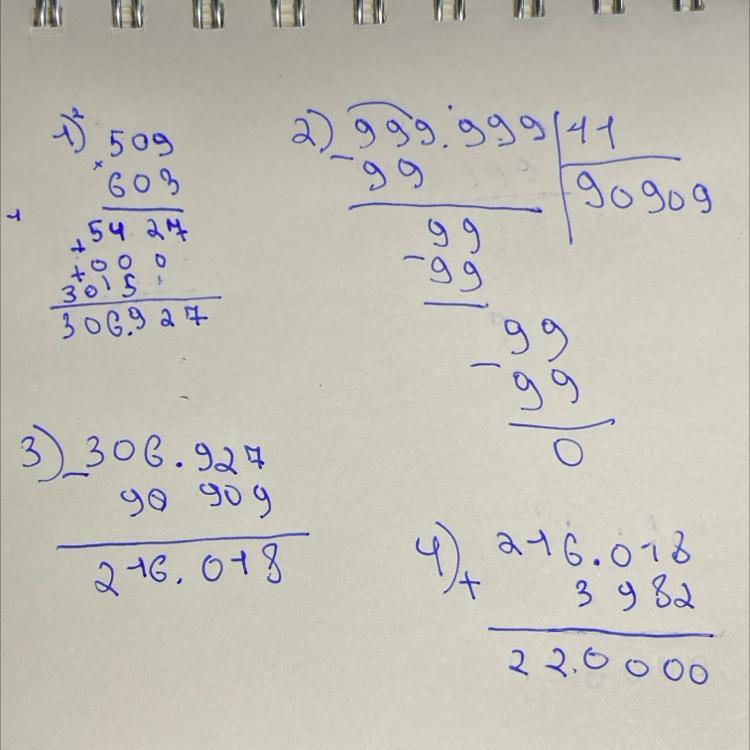 1) 2
509
×
603
+ 5427
+ 000
3015
306.927
2) 999.999 | 11
- 99 90909
99
- 99
99
- 99
0
3) - 306.927
90 909
216.018
4) 216.018
+ 3982
22.0000